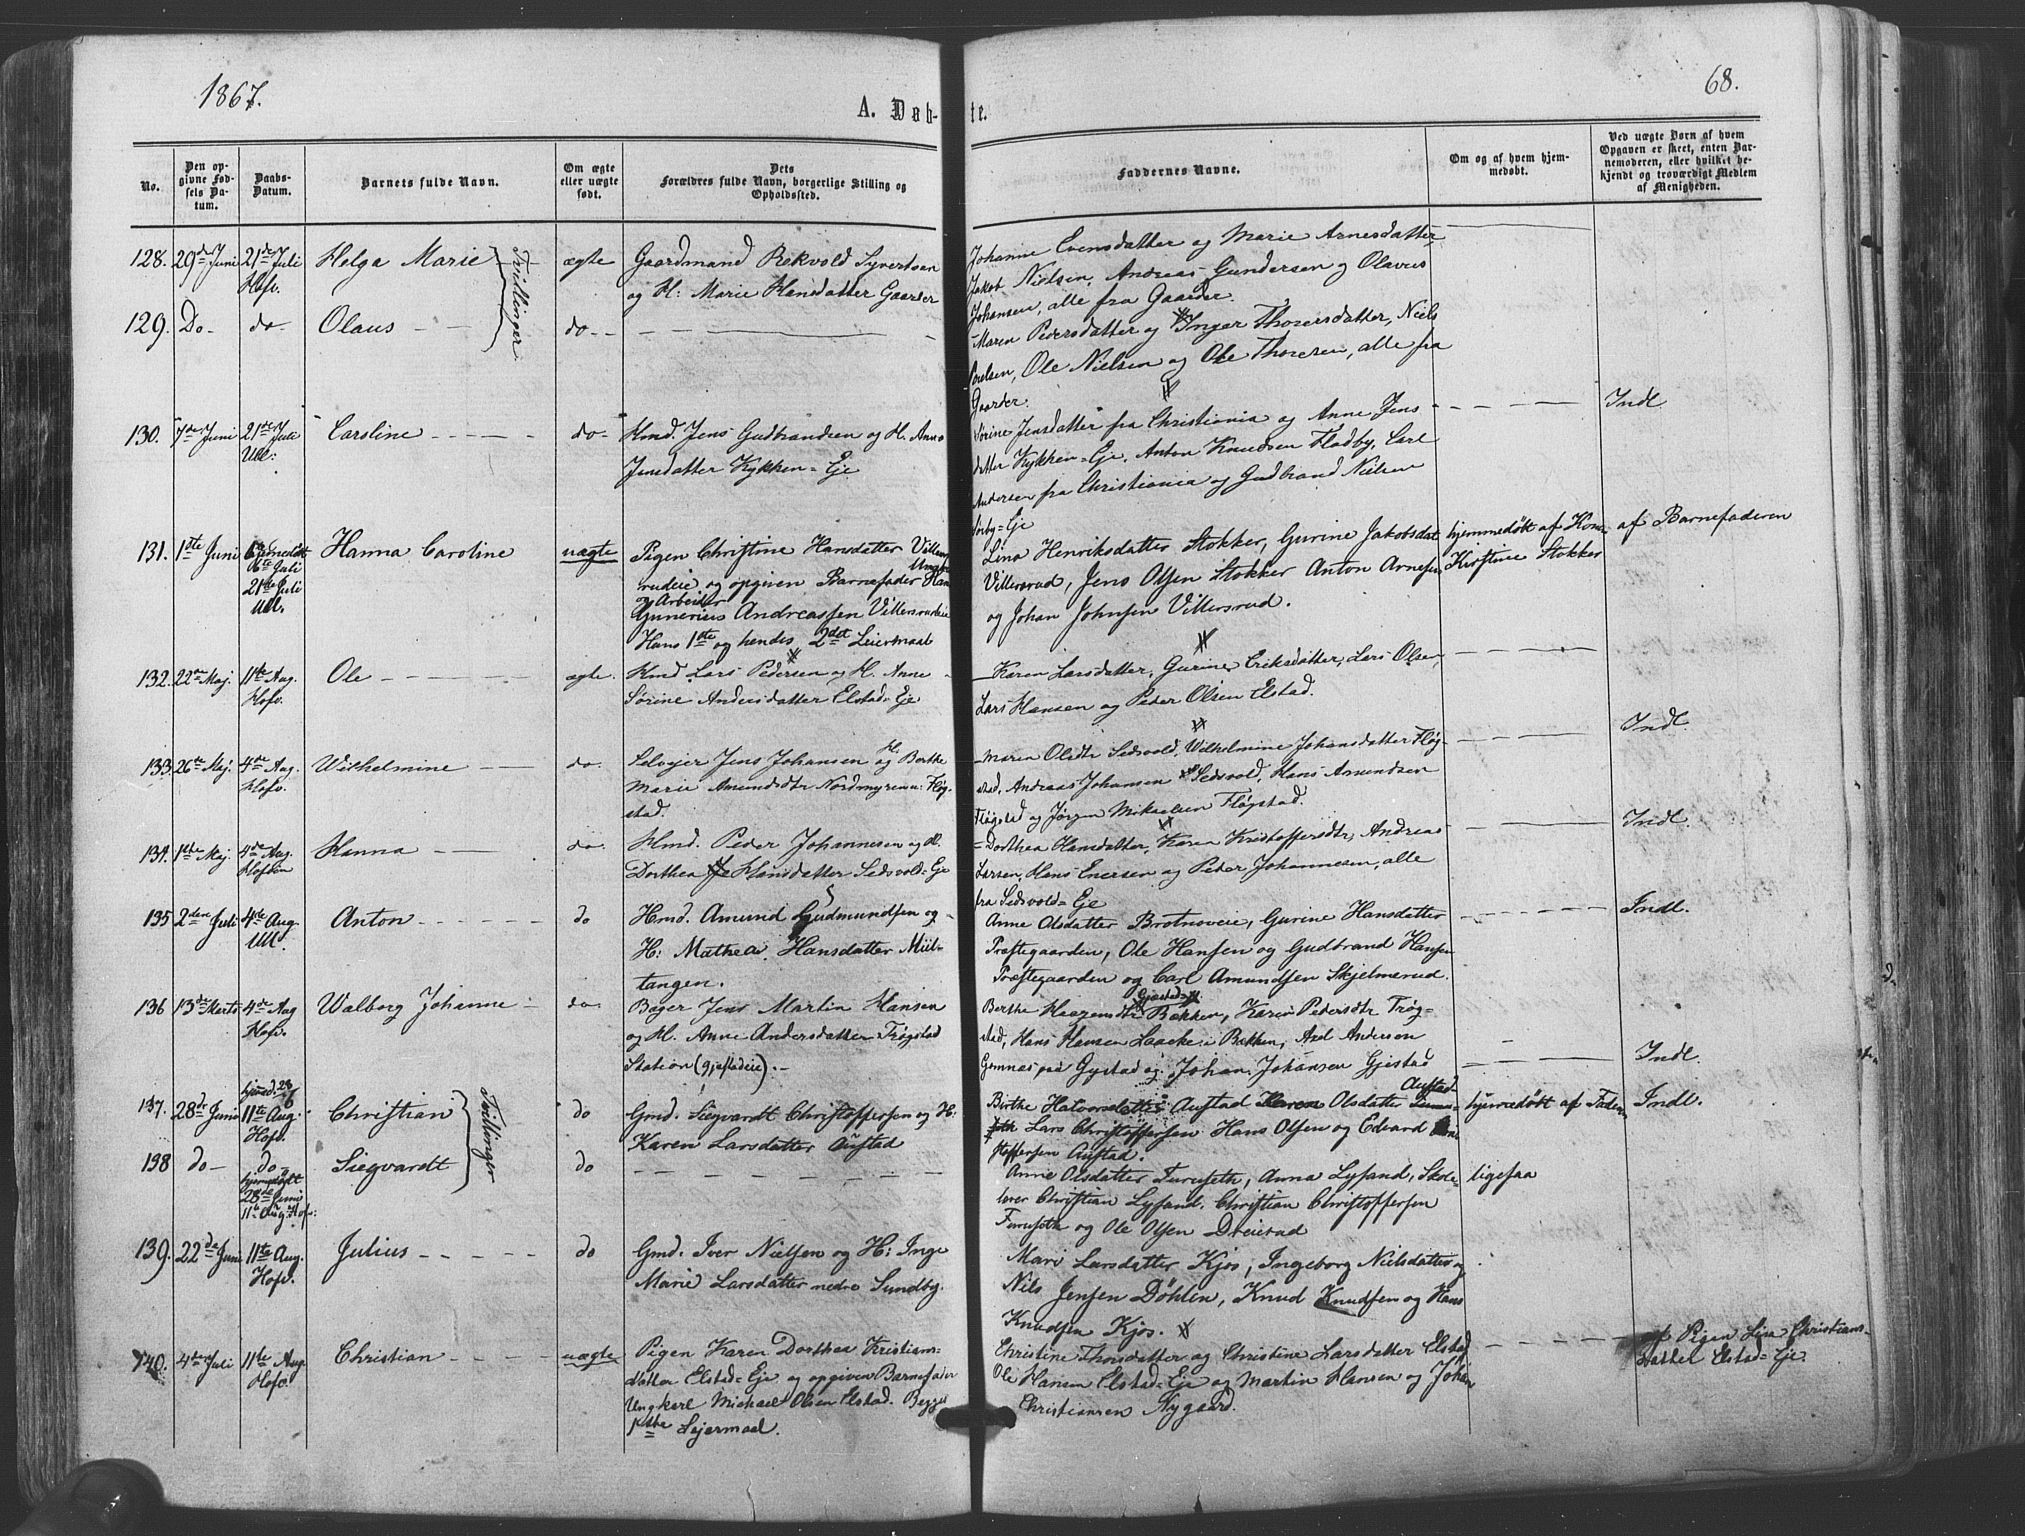 1867.
68.
A. Døb-
te.
No.
Den op-
givne Fød-
sels Da-
tum.
Daabs-
Datum.
Barnets fulde Navn.
Om ægte
eller uægte
født.
Dets
Forældres fulde Navn, borgerlige Stilling og
Opholdssted.
Faddernes Navne.
Om og af hvem hjem-
medøbt.
Ved uægte Børn af hvem
Opgaven er skeet, enten Bar-
nemoderen, eller hvilket be-
kjendt og troværdigt Medlem
af Menigheden.
128. 29de Juni 21de Juli Helga Marie ægte Gaardmand Rekvold Syvertsen
Hofv. og H: Marie Hansdatter Gaarder
Tvillinger
Johanne Evensdatter og Marie Arnesdatter,
Jakob Nielsen, Andreas Gundersen og Olavus
Johansen, alle fra Gaarder.
129. Do- do- Olaus do-
Maren Pedersdatter og Inger Thoresdatter, Niels
Poulsen, Ole Nielsen og Ole Thoresen, alle fra
Gaarder.
130. 7de Juni 21de Juli Caroline do- Hmd. Jens Gudbrandsen og H. Anne
Ull: Jensdatter Kykken=Eje
Sørine Jensdatter fra Christiania og Anne Jens
datter Kykken=Eje, Anton Knudsen Fladby, Carl
Andersen fra Christiania og Gudbrand Nielsen
Sørby=Eje
Indl
131. 1ste Juni hjemmedøbt Hanna Caroline uægte Pigen Christine Hansdatter
6te Juli
21de Juli
Ull.
rudeie og opgiven Barnefader
og Arbeider
Gunerius Andreassen Villersrudeie
Hans 1ste og hendes 2det Leiermaal
Lina Henriksdatter Stokker, Gurine Jakobsdat
Villersrud, Jens Olsen Stokker Anton Arnesen
og Johan Johnsen Villersrud.
hjemmedøbt af Kone
Kirstine Stokker
af Barnefaderen
132. 22de Maj. 11te Aug. Ole ægte. Hmd. Lars Pedersen og H. Anne
Hofv. Sørine Andersdatter Elstad=Eje
Karen Larsdatter, Gurine Eriksdatter, Lars Olsen,
Lars Hansen og Peder Olsen Elstad.
133. 26de Maj. 4de Aug. Wilhelmine do. Selvejer Jens Johansen og H. Berthe
Hofv. Marie Amundsdtr Nordmyren u: Fløg-
stad.
Maren Olsdtr Sedsvold, Wilhelmine Johansdatter Fløg-
stad, Andreas Johansen Sedsvold, Hans Amundsen
Fløgstad og Jørgen Mikaelsen Fløgstad.
Indl.
134. 1ste Maj. 4de Aug. Hanna do. Hmd. Peder Johannesen og H.
Hofven Dorthea Hansdatter Sedsvold=Eje
Dorthea Hansdatter, Karen Kristoffersdtr, Andreas
Larsen, Hans Enersen og Peder Johannesen, alle
fra Sedsvold=Eje
Indl.
135 2den Juli 4de Aug. Anton do Hmd. Amund Gudmundsen og
Ull. H: Mathea Hansdatter Miil-
tangen.
Anne Olsdatter Brotnoveie, Gurine Hansdatter
Præstegaarden, Ole Hansen og Gudbrand Hansen
Præstegaarden og Carl Amundsen Skjelmerud.
Indl.
136 13de Marts 4de Aug Walborg Johanne do. Bager Jens Martin Hansen
Hofv. og H. Anne Andersdatter Trøgstad
Station (Gjestadeie).
Berthe Haagensdtr Bakken, Karen Pedersdtr Trøg-
stad, Hans Hansen Laache i Bakken, Axel Andersen
Gemnæs paa Gystad og Johan Johansen Gjestad
Indl.
137. 28de Juni hjemd. 28/6 Christian do Gmd. Siegvardt Christoffersen og H:
11te Aug. Karen Larsdatter Austad
Hofv.
Tvillinger
Berthe Halvorsdatter Austad Karen Olsdatter Austad
Lars Christoffersen Hans Olsen og Edvard
stoffersen Austad.
hjemmedøbt af Faderen
Indl.
138 do- do- Siegvardt do
hjemmedøbt
28de Juni
11te Aug. Hofv:
Anne Olsdatter Furuseth, Anna Lysand, Skole-
lærer Christian Lysand. Christian Christoffersen
Furuseth og Ole Olsen Dreierud
ligesaa
139. 22de Juni 11te Aug. Julius do Gmd. Iver Nielsen og H: Inge
Hofv. Marie Larsdatter nedre Sundby.
Mari Larsdatter Kjos, Ingeborg Nielsdatter og
Nils Jensen Døhlen, Knud Knudsen og Hans
Knudsen Kjos.
140. 4de Juli 11te Aug. Christian uægte Pigen Karen Dorthea Kristians-
Hofv. datter Elstad=Eje og opgiven Barnefader
Ungkarl Michael Olsen Elstad. Begges
1ste Lejermaal.
Christine Thorsdatter og Christine Larsdatter Elstad
Ole Hansen Elstad=Eje og Martin Hansen og Johan
Christiansen Nygaard.
af Pigen Lisa Christians-
datter Elstad=Eje.